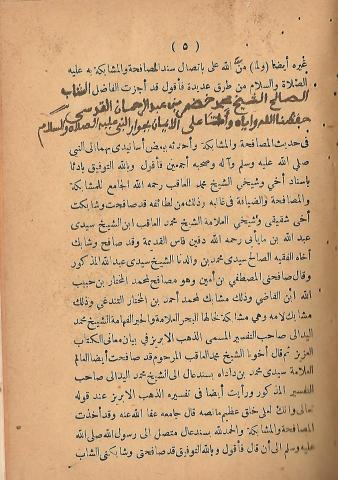 ( ٥ )
غيره أيضا (ولما) منّ الله على باتصال سند المصافحة والمشابكة به عليه
الصلاة والسلام من طرق عديدة فأقول قد أجزت الفاضل الشاب
الصالح الشيخ محمد خضر بن عبد الرحمان القوسي
حفظنا الله واياه وأماتنا على الإيمان بجوار النبي عليه الصلاة والسلام
في حديث المصافحة والمشابكة وأحدثه ببعض أسانيدى بهما الى النبى
صلى الله عليه وسلم وآله وصحبه أجمعين فأقول وبالله التوفيق بادئا
باسناد أخى وشيخى الشيخ محمد العاقب رحمه الله الجامع للمشابكة
والمصافحة والضيافة فى غالبه وذلك من لطائفه قد صافحت وشابكت
أخى شقيقى وشيخى العلامة الشيخ محمد العاقب ابن الشيخ سيدى
عبد الله بن مايابى رحمه الله دفين فاس القديمة وقد صافح وشابك
أخاه الفقيه الصالح سيدى محمد بن والدنا الشيخ سيدى عبد الله المذكور
وقال صافحنى المصطفى بن أمين وهو مصافح لمحمد المختار بن حبيب
الله ابن القاضى وذلك مشابك لمحمد أحمد بن المختار التندغى وذلك
مشابك لامه وهى مشابكة لخالها البحر العلامة والحبر الفهامة الشيخ محمد
اليدالى صاحب التفسير المسمى الذهب الابريز فى بيان معانى الكتاب
العزيز ثم قال أخونا الشيخ محمد العاقب المرحوم قد صافحت أيضا العالم
العلامة سيدى محمد بن داداه بسند عال الى الشيخ محمد اليدالى صاحب
التفسير المذكور ورأيت أيضا فى تفسيره الذهب الابريز عند قوله
تعالى وانك لعلى خلق عظيم مانصه قال جامعه عفا الله عنه وقد أخذت
المصافحة والمشابكة والحمد لله بسند عال متصل الى رسول الله صلى الله
عليه وسلم الى أن قال فأقول وبالله التوفيق قد صافحنى وشابكنى الشاب